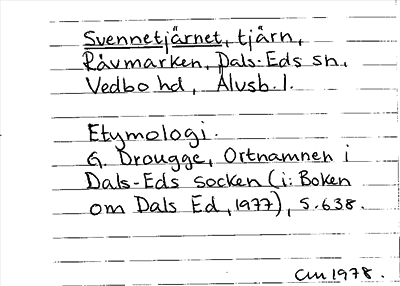 Svennetjärnet, tjärn,
Råvmarken, Dals-Eds sn,
Vedbo hd, Älvsb. l.
Etymologi.
G. Drougge, Ortnamnen i
Dals-Eds socken (i: Boken
om Dals Ed, 1977), s. 638.
CM 1978.